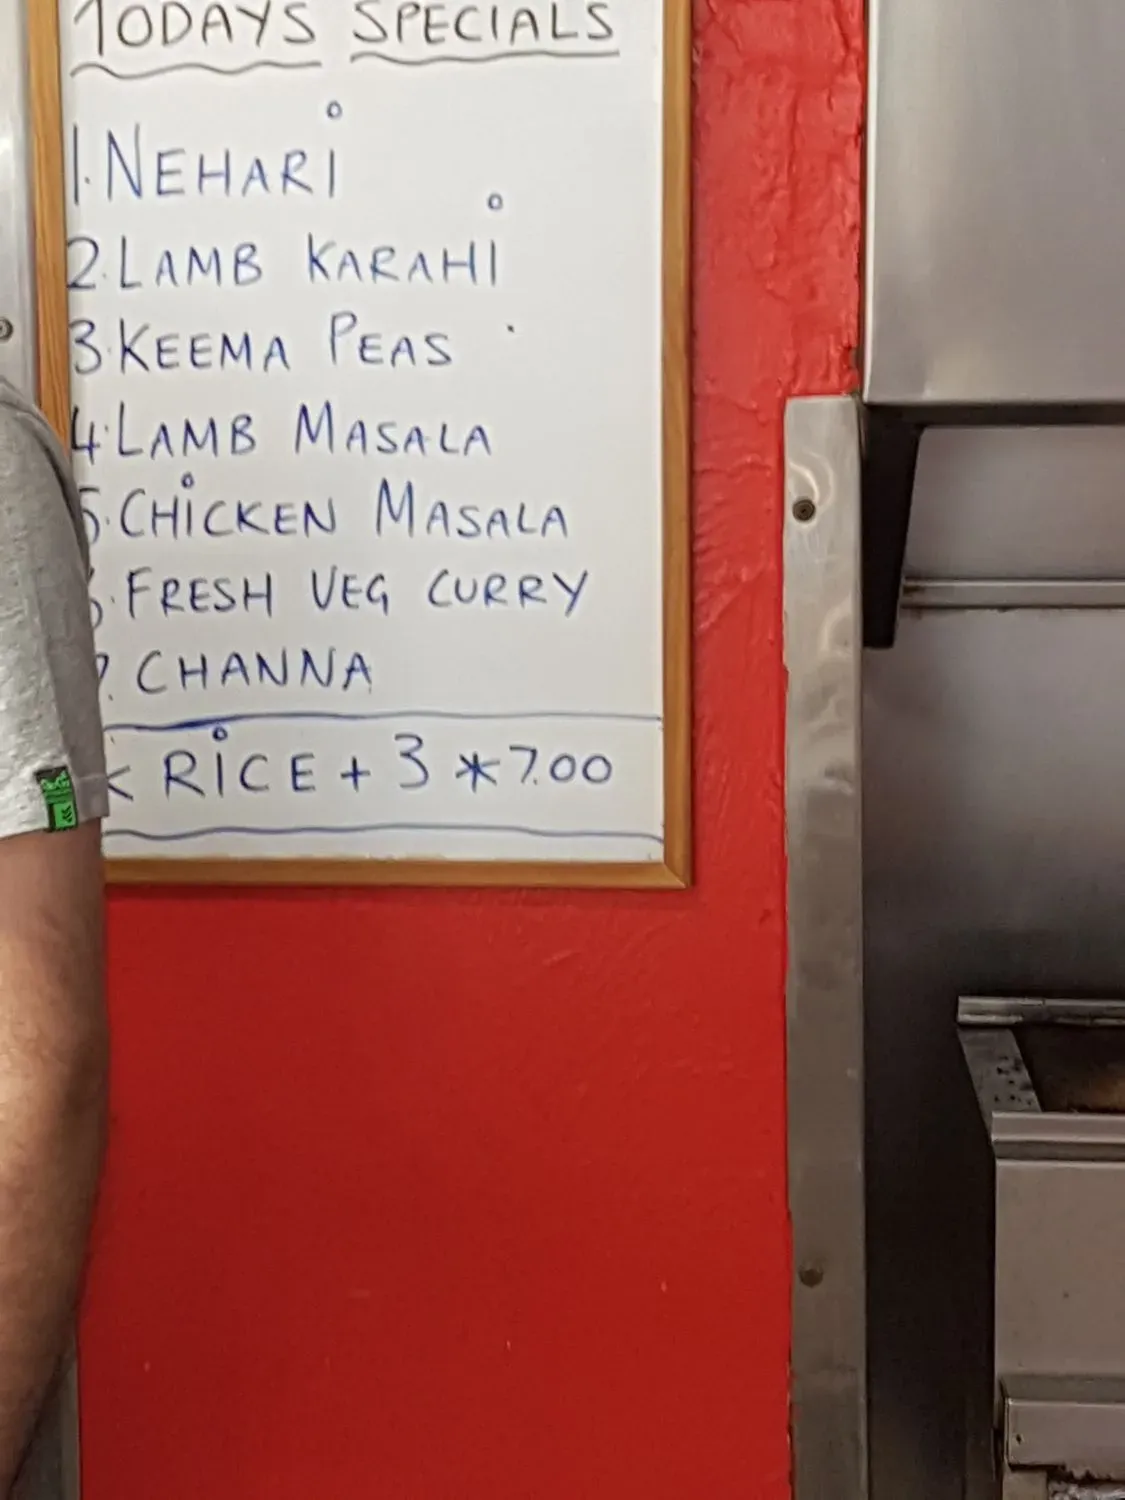 TODAYS SPECIALS
1. NEHARI
2. LAMB KARAHI
3. KEEMA PEAS
4. LAMB MASALA
5. CHICKEN MASALA
6. FRESH VEG CURRY
7. CHANNA
* RICE + 3 * 7.00